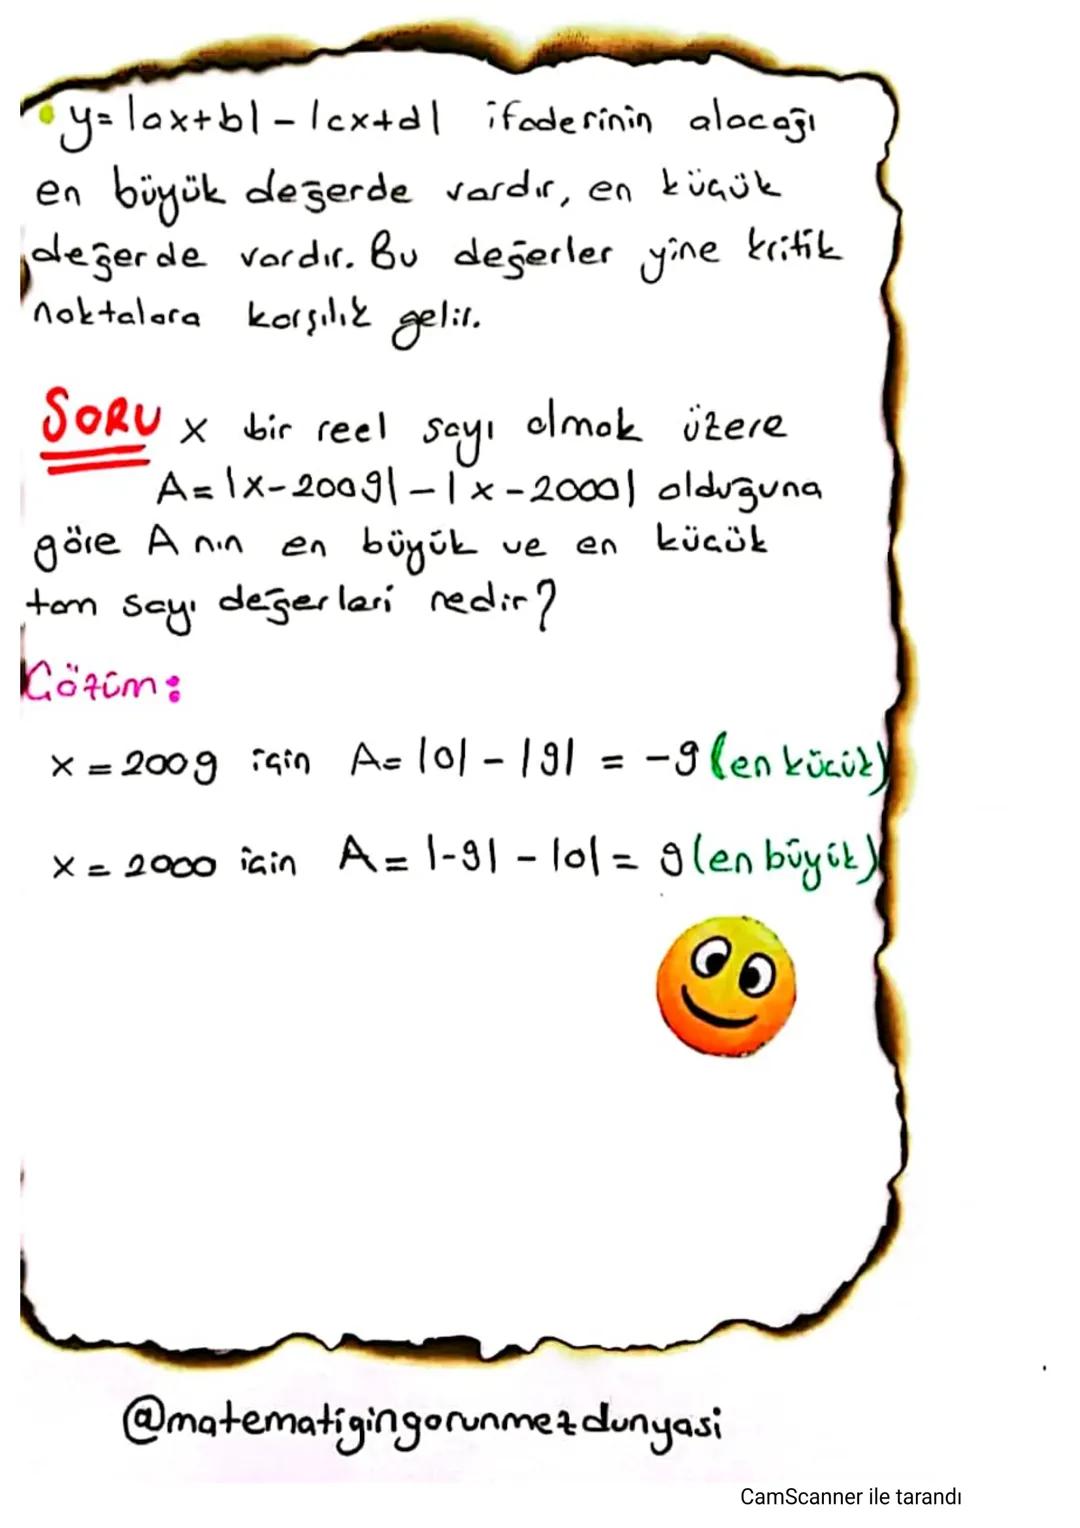 y=|ax+b|-|cx+d| ifadesinin alacağı
en büyük değerde vardır, en küçük
değerde vardır. Bu değerler yine kritik
noktalara karşılık gelir.
SORU x bir reel sayı olmak üzere
A=|x-2009|-|x-2000| olduğuna
göre A nın en büyük ve en küçük
tam sayı değerleri nedir?
Çözüm:
x=2009 için A=|0|-|9| = -9 (en küçük)
x=2000 için A=|-9|-|0|= 9 (en büyük)
@matematigingorunmezdunyasi
CamScanner ile tarandı